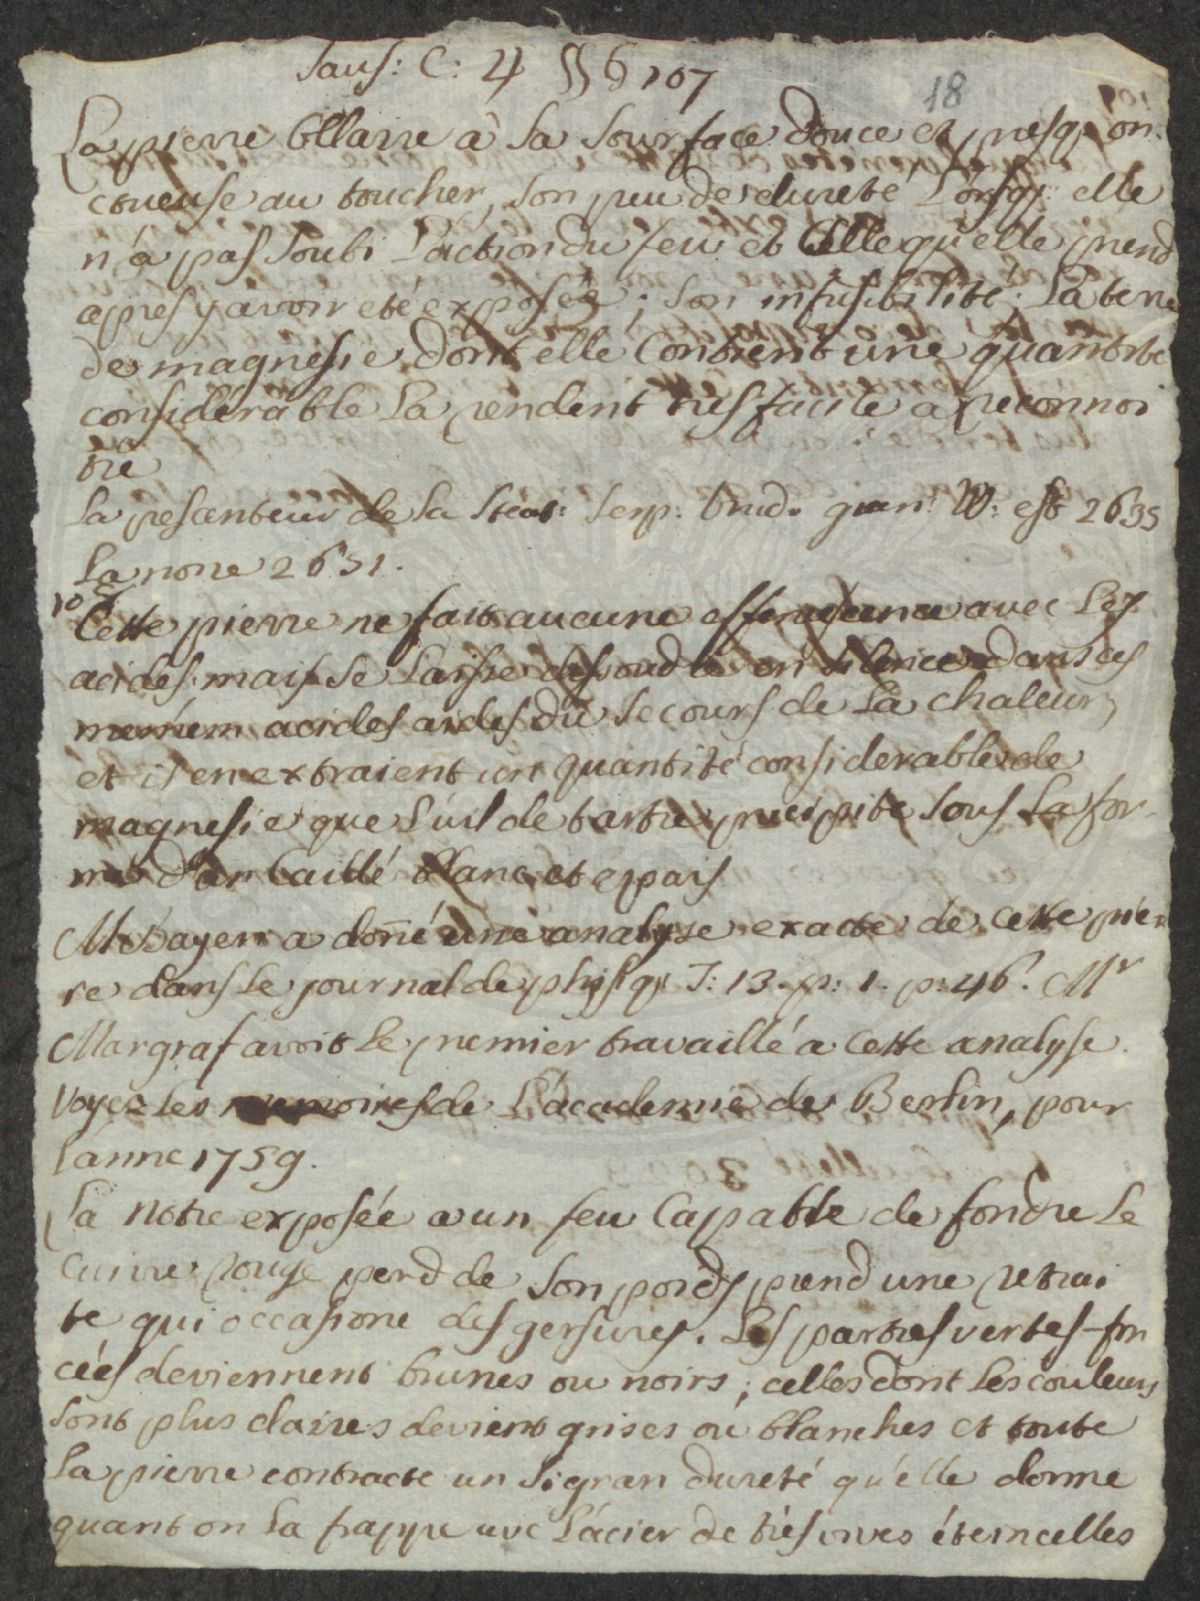 Saus: C: 4 §§ 6 107
18
La pierre Ollaire à sa sourface douce et presq: on
ctueuse au toucher, son peu de dureté, Lorsq: elle
n'a pas soubi L'action du feu et Celle qu'elle prend
apres y avoir eté exposée; son infusibilité; La terre
de magnesie dont elle Contient une quantité
considerable La rendent tres facile a reconnoi
tre
La pesanteur de la Steat: Serp: est 2635
La notre 2631.
108
Cette pierre ne fait aucune effervecence avec Les
acides mais se Laisse dissoudre en silence dans ces
acides aides du secours de La chaleur,
et ils en extraient un quantité considerable de
magnesie que L'uil de tartre precipite sous La for-
me d'un Caillé blanc et epais
Mr Bayen a doñé une analyse exacte de cette pier
re dans Le journal de phisiq: T: 13. p: 1. p: 46. Mr
Margraf avoit Le premier travaillé a Cette analyse.
Voyez Les memoires de L'academie de Berlin, pour
L'anne 1759.
La notre exposée a un feu Capable de fondre Le
Cuivre rouge perd de son poids prend une retrai
te qui occasione des gersures. Les parties vertes-fon
cées deviennent brunes ou noirs; celles dont Les couleurs
sont plus claires devient grises ou blanches et toute
La pierre contracte un si gran dureté qu'elle donne
quant on La frappe avec L'acier de trés vives éteincelles